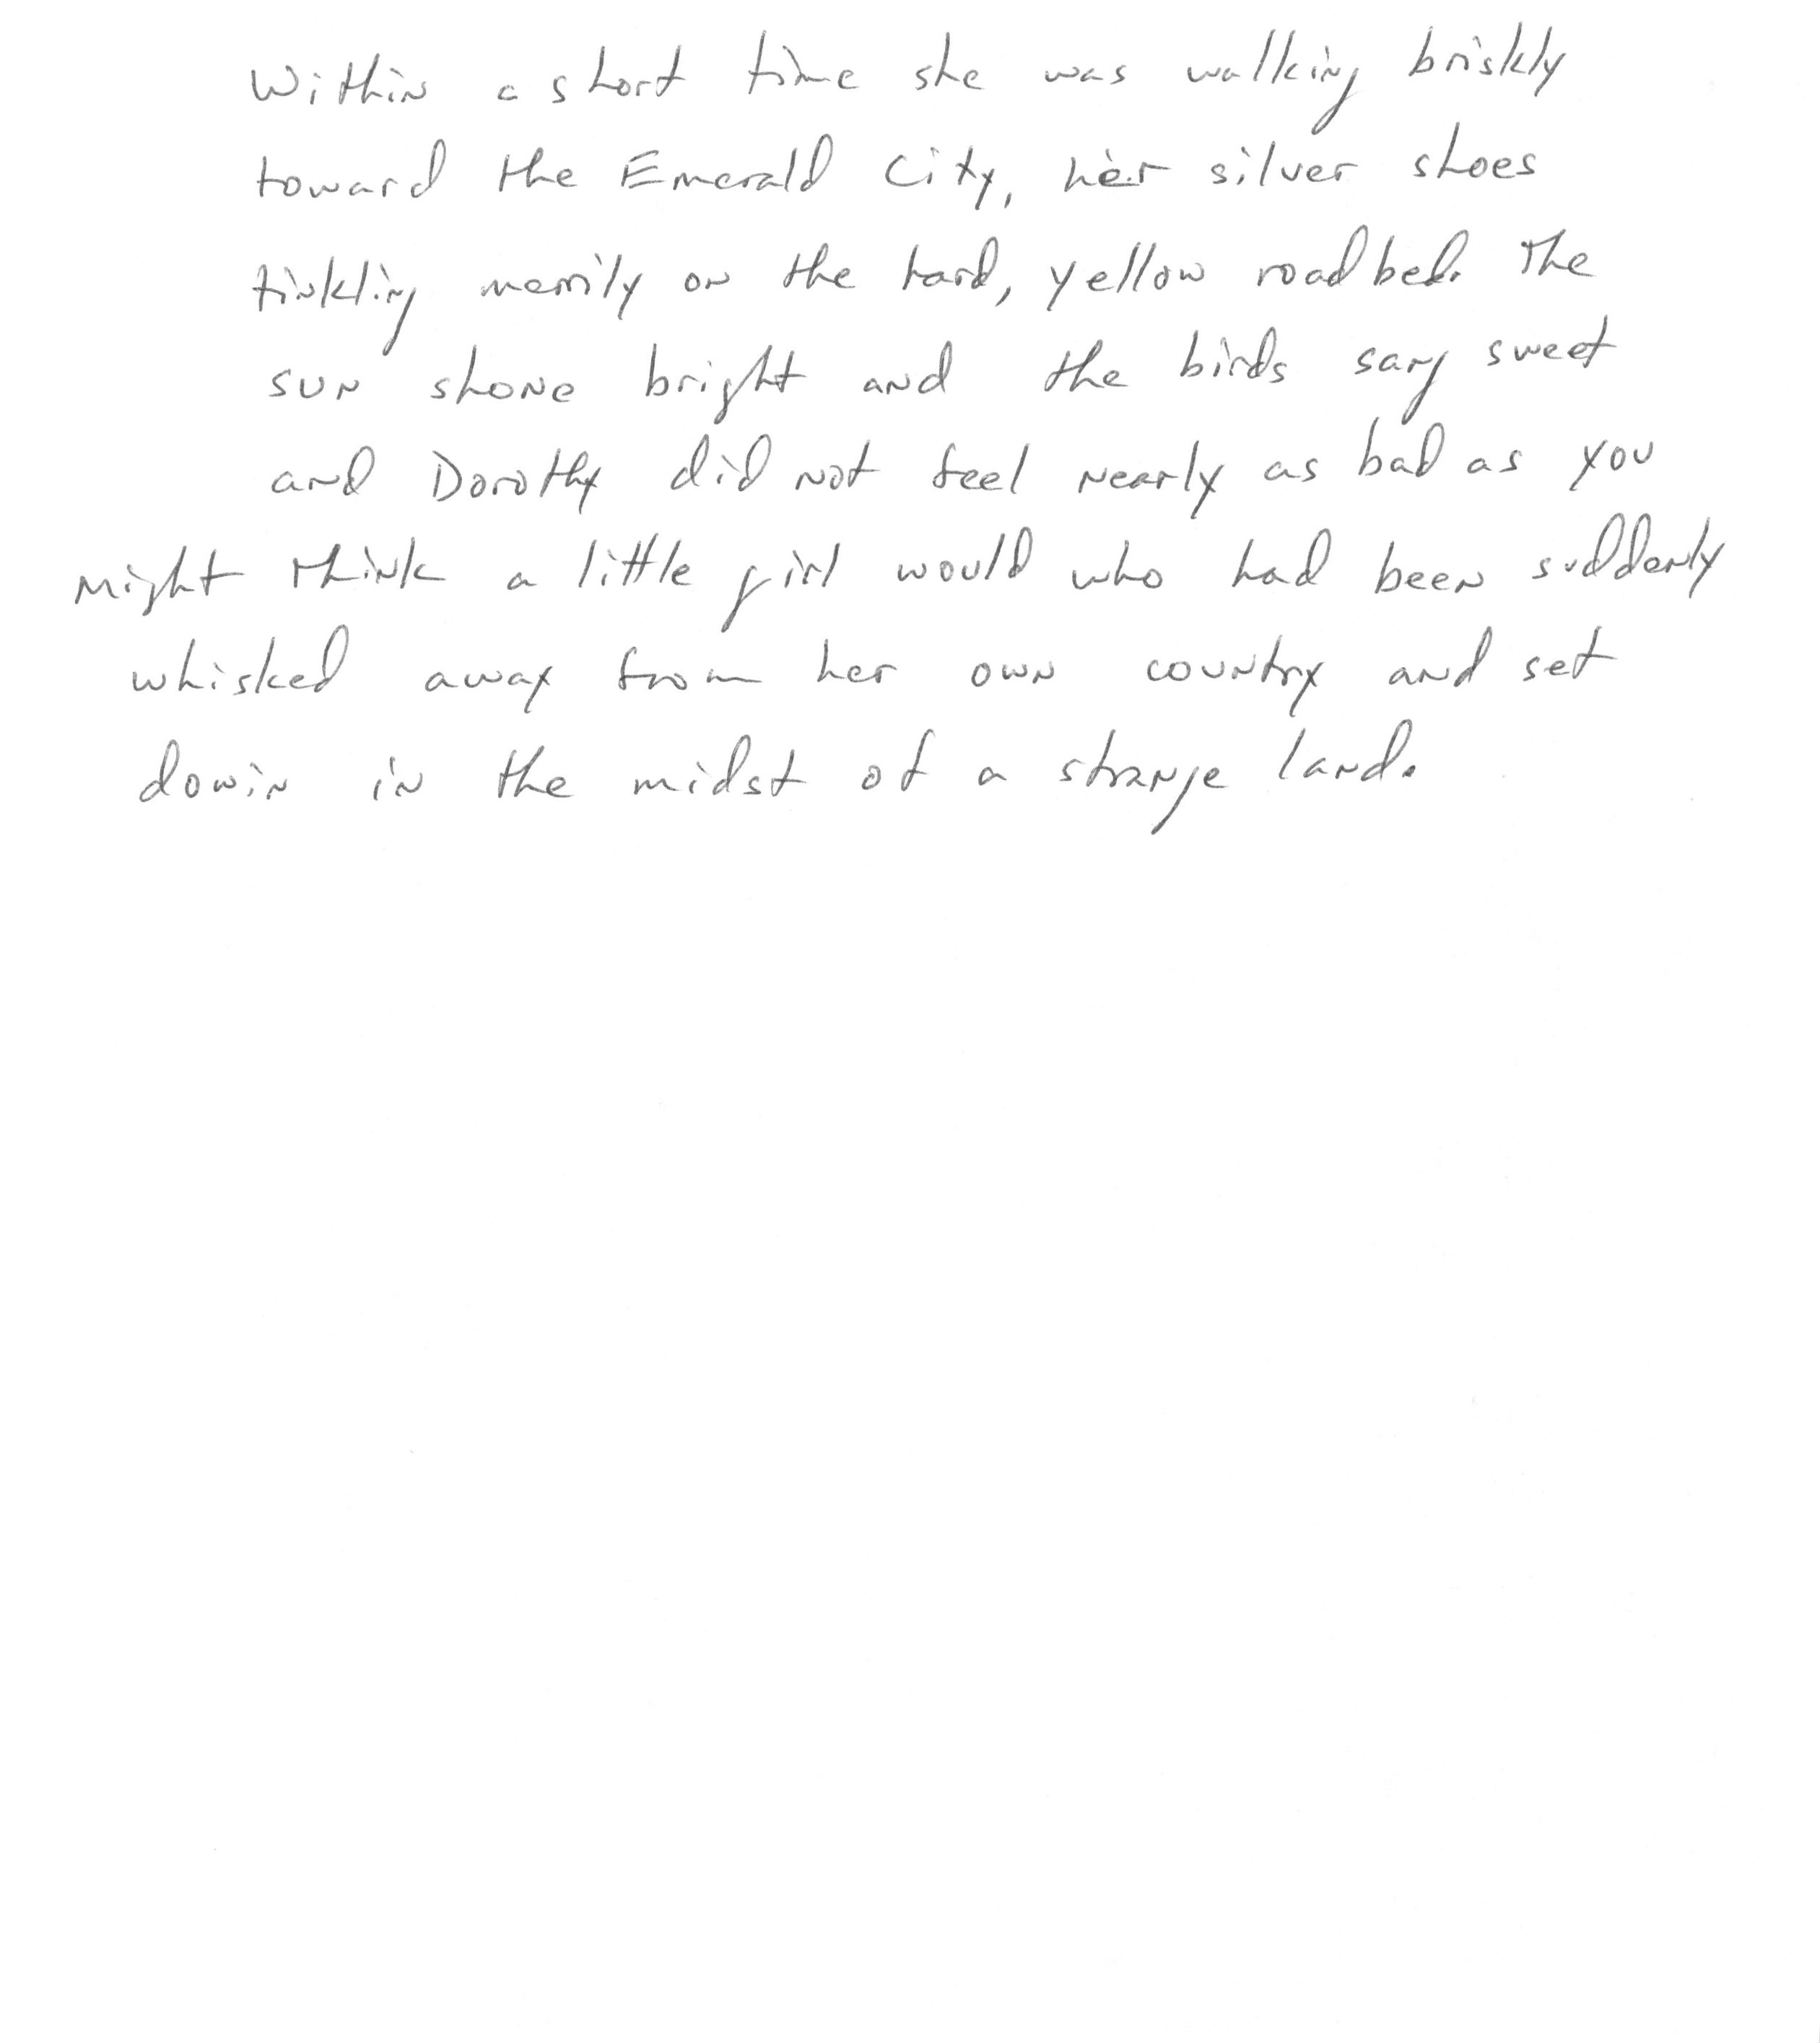 Within a short time she was walking briskly
toward the Emerald City, her silver shoes
tinkling merrily on the hard, yellow roadbed. The
sun shone bright and the birds sang sweet
and Dorothy did not feel nearly as bad as you
might think a little girl would who had been suddenly
whisked away from her own country and set
down in the midst of a strange land.